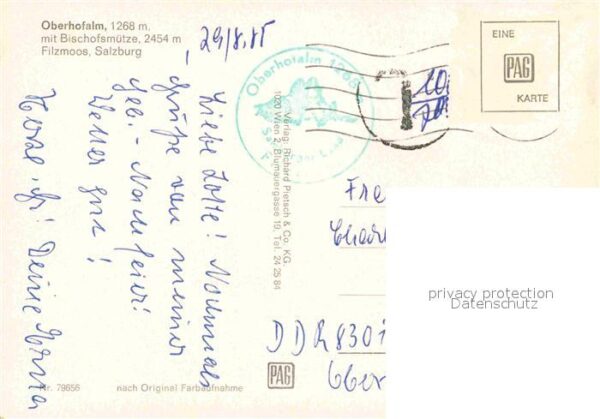 Oberhofalm, 1268 m.
mit Bischofsmütze, 2454 m
Filzmoos, Salzburg
29/8.85
Liebe Lotte! Nochmals
Grüße von meiner
Geb.- Nachfeier!
Wetter gut!
Deine
Oberhofalm 1268
Verlag: Richard Pietsch & Co. KG.
1020 Wien 2, Blumauergasse 19, Tel. 24 25 84
EINE
PAG
KARTE
DDR 8301
PAG
Nr. 79656
nach Original Farbaufnahme
privacy protection
Datenschutz